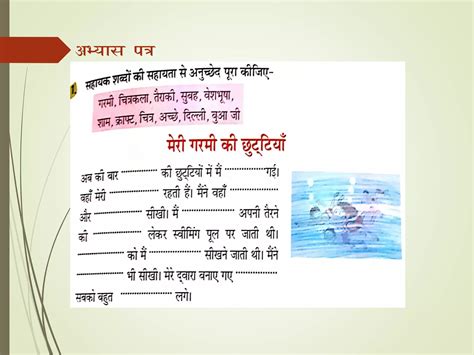 अभ्यास पत्र
1. सहायक शब्दों की सहायता से अनुच्छेद पूरा कीजिए-
गरमी, चित्रकला, तैराकी, सुबह, वेशभूषा,
शाम, क्राफ्ट, चित्र, अच्छे, दिल्ली, बुआ जी
मेरी गरमी की छुट्टियाँ
अब की बार ................ की छुट्टियों में मैं ................ गई।
वहाँ मेरी ................ रहती हैं। मैंने वहाँ ................
और ................ सीखी। मैं ................ अपनी तैरने
की ................ लेकर स्वीमिंग पूल पर जाती थी।
................ को मैं ................ सीखने जाती थी। मैंने
................ भी सीखी। मेरे द्वारा बनाए गए ................
सबको बहुत ................ लगे।